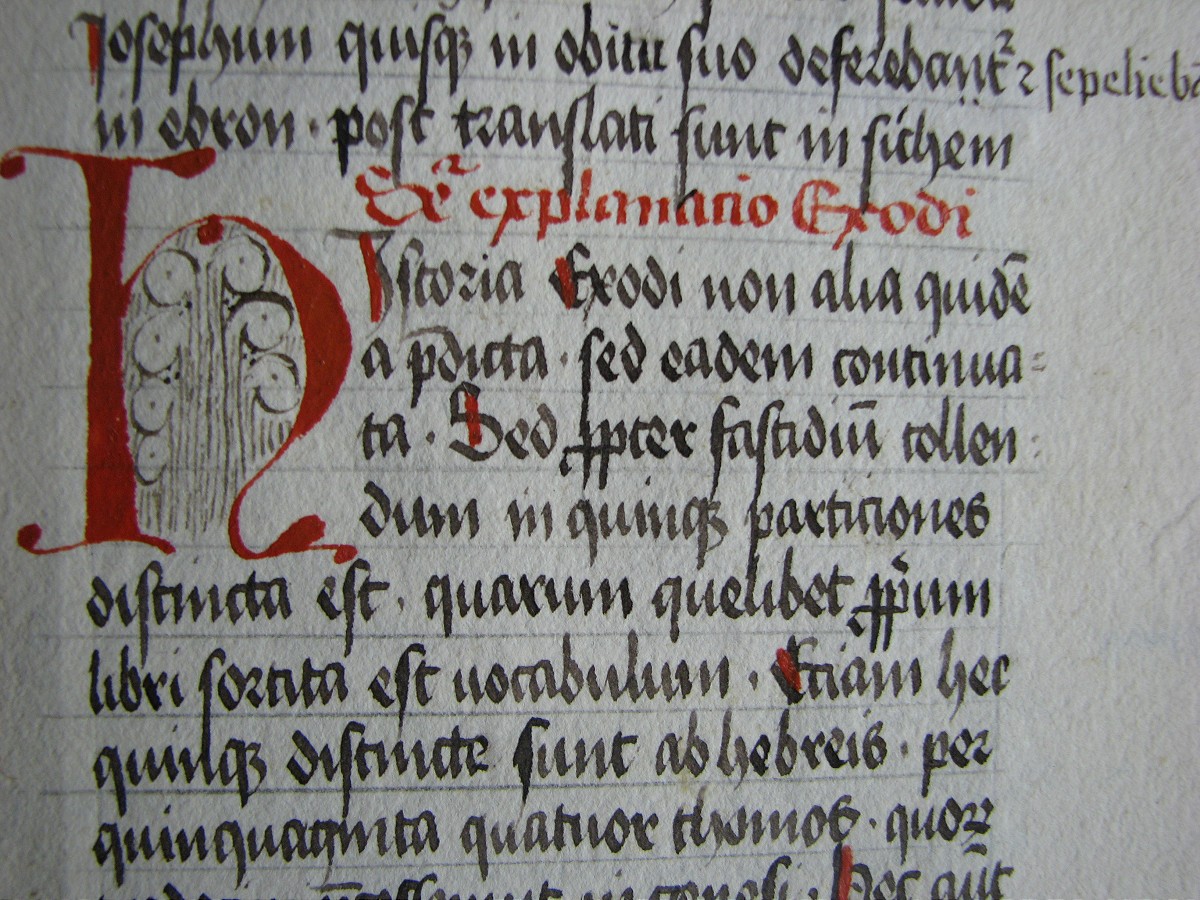 Josephum quisqꝫ in obitu suo deferebant᷑ ⁊ sepelieb
in ebron · post translati sunt in sichem
explanacio Exodi
HIstoria Exodi non alia quidē
a p̄dicta · sed eadem continua
ta · Sed ꝓpter fastidiū tollen
dum in quinqꝫ particiones
distincta est · quarum quelibet ꝓpⁱum
libri sortita est uocabulum · Etiam hec
quinqꝫ distincte sunt ab hebreis · per
quinquaginta quatuor thomos · quoꝝ
in genesi · Hec aūt